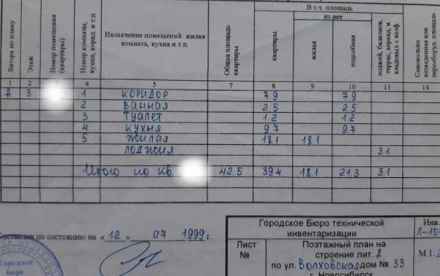 В т.ч. площадь
из нее
Литера по плану
Этаж
Номер помещения (квартиры)
Номер комнаты, кухни, корид. и т.п.
Назначение помещений: жилая комната, кухня и т.п.
Общая площадь квартиры
квартиры
жилая
подсобная
лоджий, балконов, террас, веранд, и кладовых с коэф.
Самовольно
1 2 3 4 5 7 8 9 10 11 14
1 коридор 7.9 7.9
2 ванная 2.5 2.5
3 туалет 1.2 1.2
4 кухня 9.7 9.7
5 жилая 18.1 18.1
лоджия 3.1
Итого по кв 42.5 39.4 18.1 21.3 3.1
по состоянию на « 12 » 07 1999 г.
Городское Бюро технической
инвентаризации
Лист
№
Поэтажный план на
строение лит.
по ул. Волховская дом № 33
г. Новосибирск
М 1: